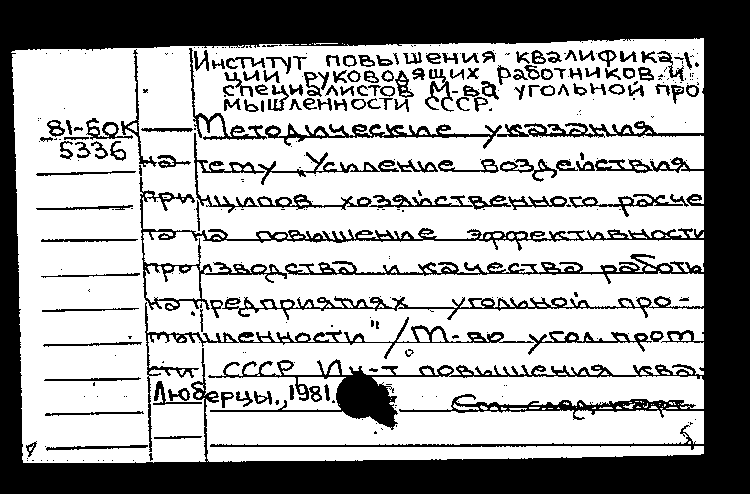 Институт повышения квалифика-
ции руководящих работников и
специалистов М-ва угольной про
мышленности СССР.
81-БОК
5336
Методические указания
на тему „Усиление воздействия
принципов хозяйственного расче
та на повышение эффективности
производства и качества работы
на предприятиях угольной про-
мышленности" / М-во угол. пром
сти СССР Ин-т повышения ква
Люберцы., 1981.
См. след. карт.